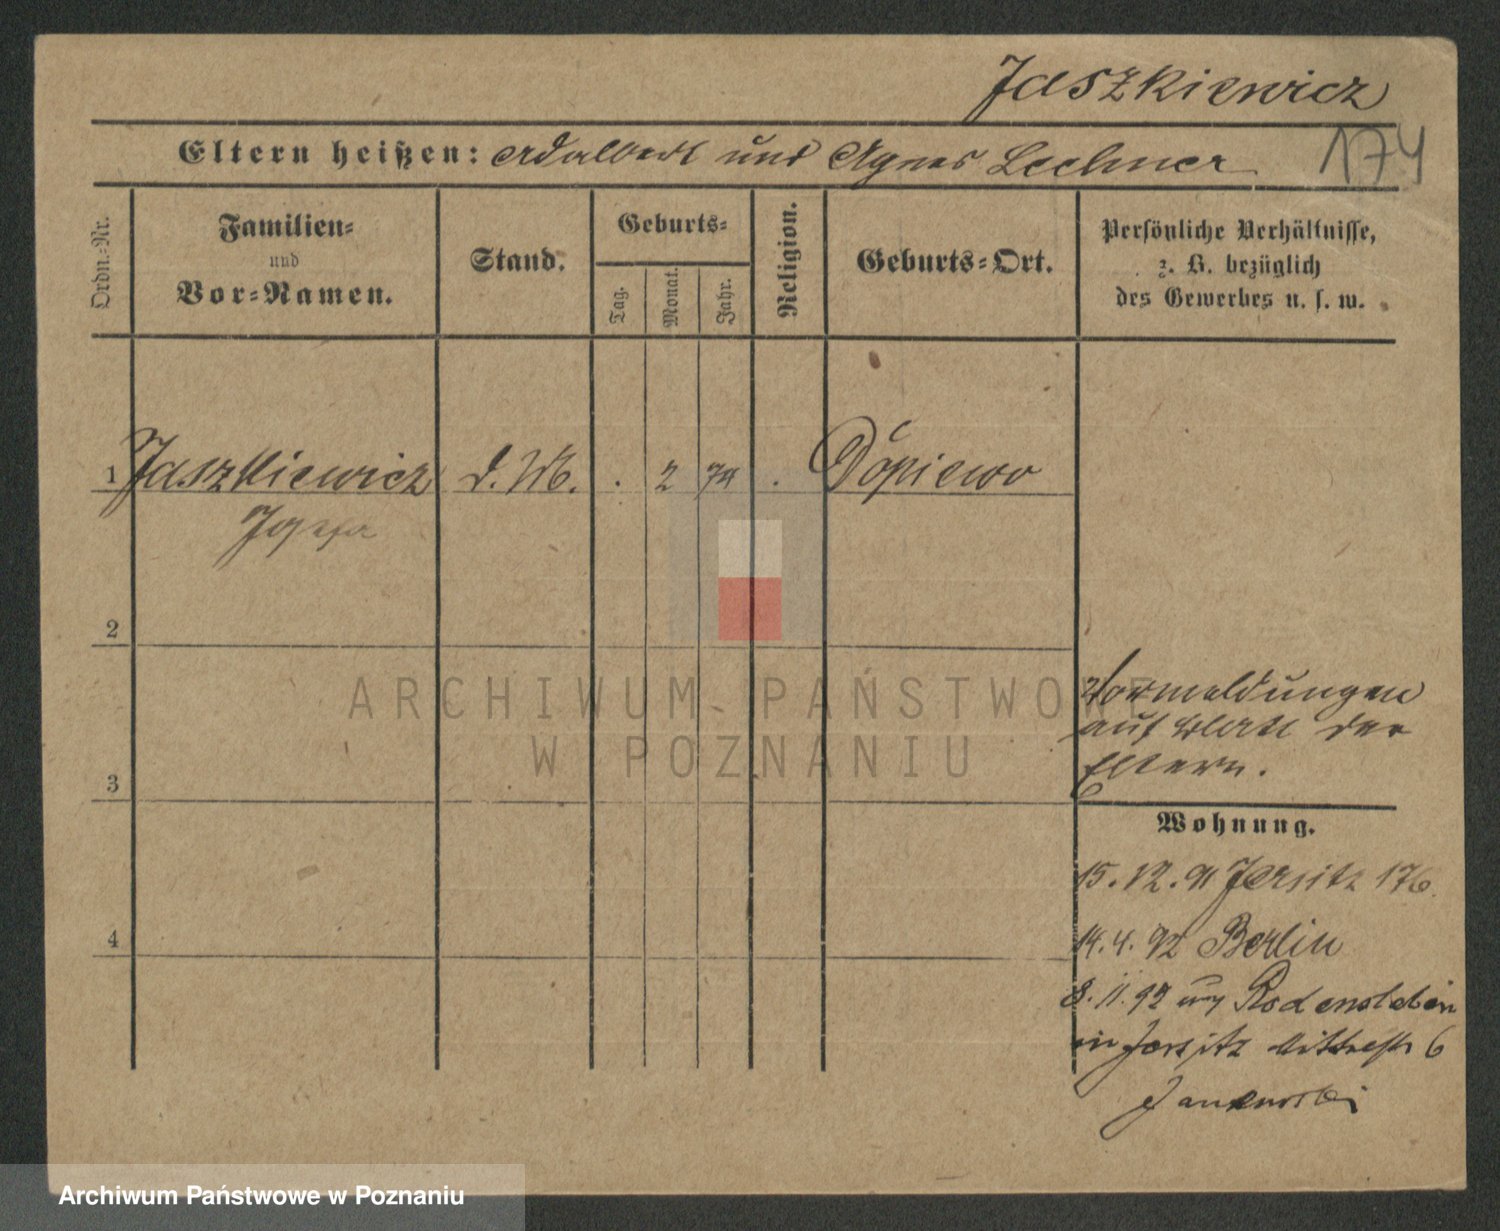 Jaszkiewicz
174
Eltern heißen: Adalbert und Agnes Lechner
Ordn.-Nr.
Familien-
und
Vor-Namen.
Stand.
Geburts-
Tag.
Monat.
Jahr.
Religion.
Geburts-Ort.
Persönliche Verhältnisse,
z. B. bezüglich
des Gewerbes u. s. w.
1 Jaszkiewicz d. M. . 2 74 . Dopiewo
Josefa
2
Vormeldungen
auf Blatt der
Eltern.
3
Wohnung.
15.12.91 Jersitz 176.
4
14.4.92 Berlin
8.11.92
in Jersitz 6
ARCHIWUM PAŃSTWOWE
W POZNANIU
Archiwum Państwowe w Poznaniu